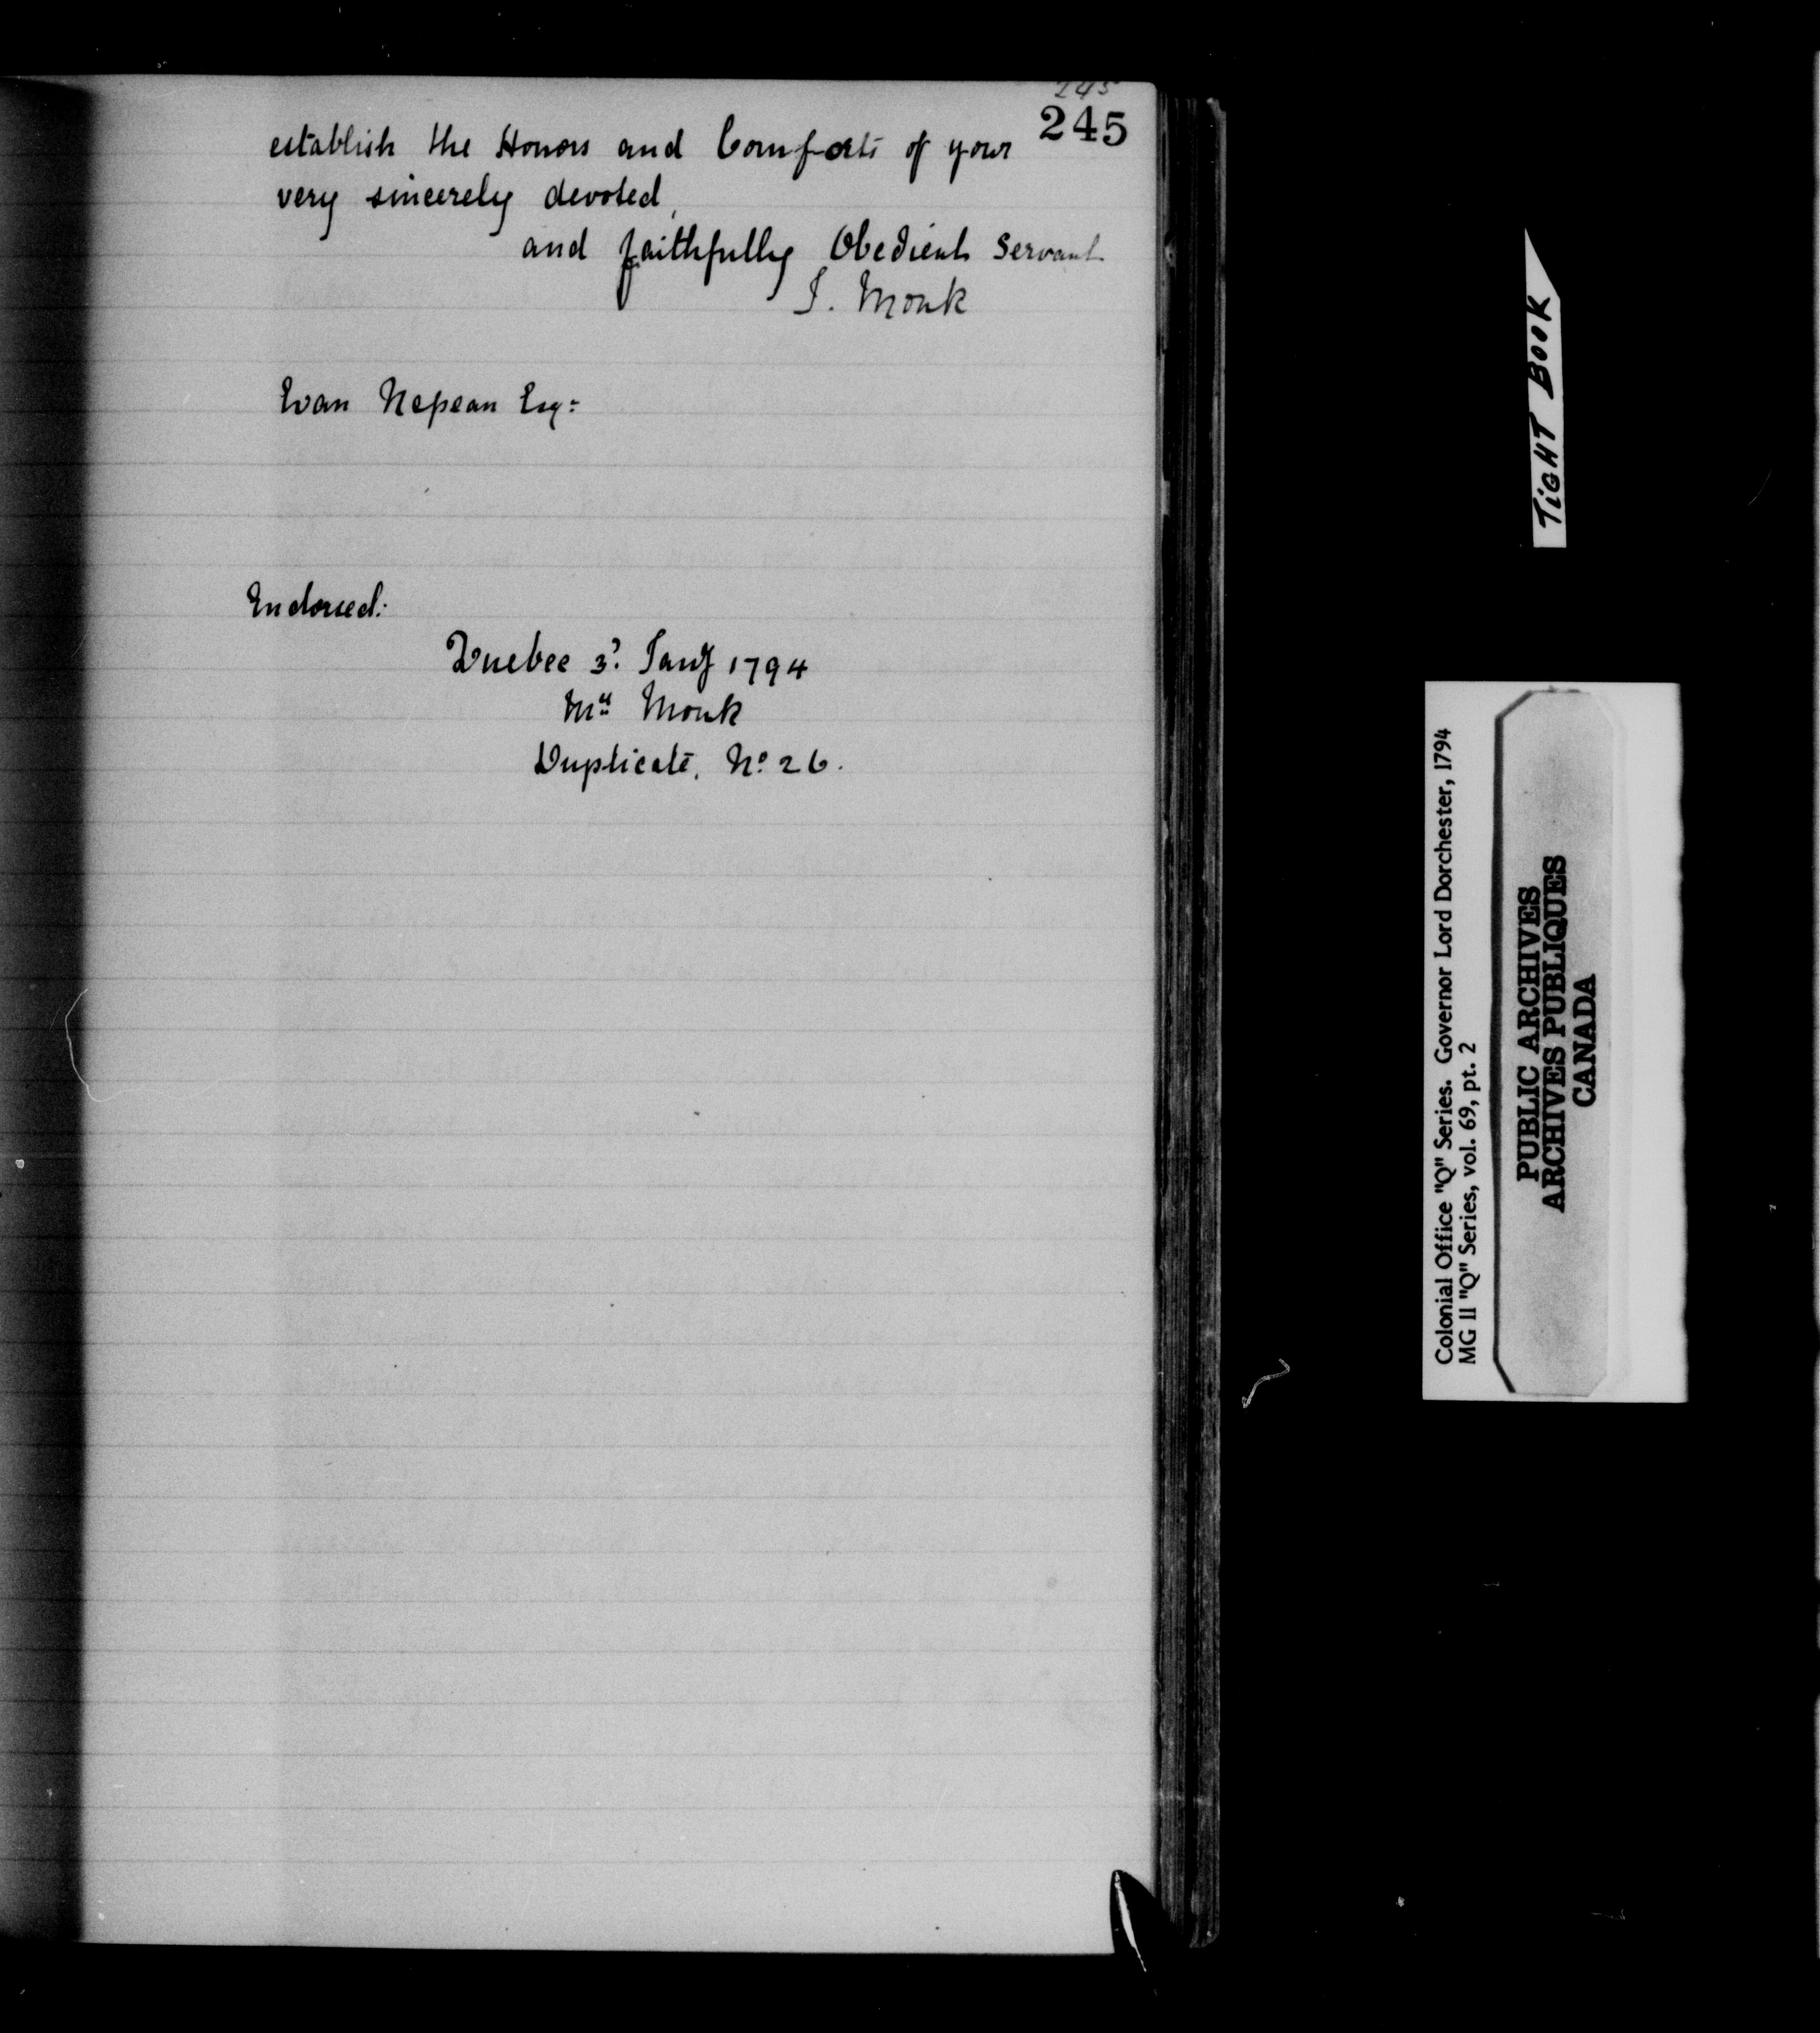 245
245
establish the Honors and Comforts of your
very sincerely devoted,
and faithfully Obedient Servant
J. Monk
Evan Nepean Esq:
Endorsed:
Quebec 3? Jany 1794
Mr Monk
Duplicate, No 26.
TIGHT BOOK
Colonial Office "Q" Series. Governor Lord Dorchester, 1794
MG 11 "Q" Series, vol. 69, pt. 2
PUBLIC ARCHIVES
ARCHIVES PUBLIQUES
CANADA